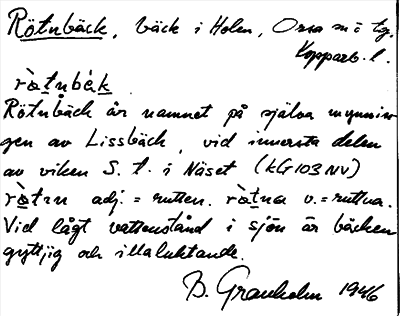 Rötnbäck, bäck i Holen, Orsa sn i tg.
Kopparb. l.
rø̀tnbäk
Rötnbäck är namnet på själva mynnin-
gen av Lissbäck, vid innersta delen
av viken S. t. i Näset (kG103NV)
adj. = rutten. v. = ruttna.
Vid lågt vattenstånd i sjön är bäcken
gyttjig och illaluktande.
B. Granholm 1946